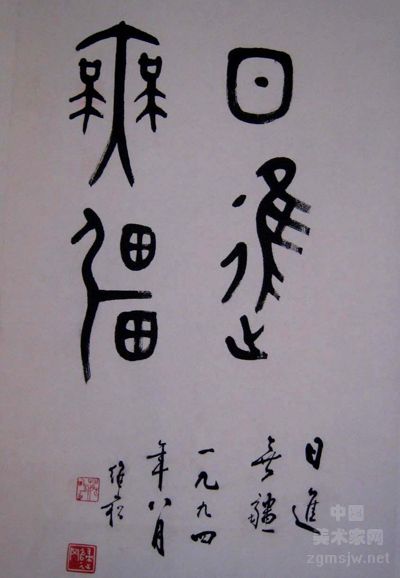 日進
無疆
日進
無疆
一九九四
年八月
中国
美术家网
zgmsjw.net